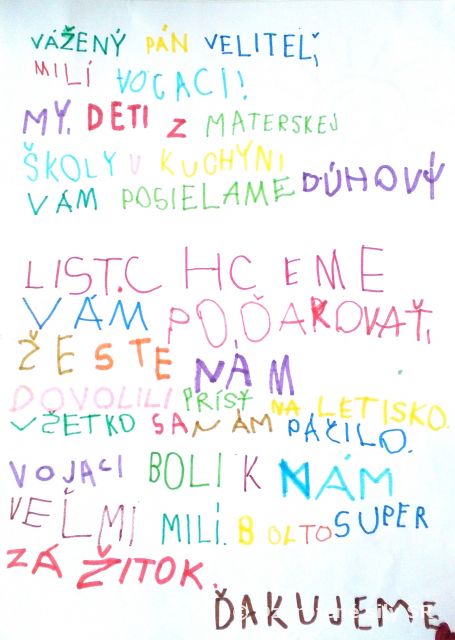 VÁŽENÝ PÁN VELITEĽ,
MILÍ VOCACI!
MY, DETI Z MATERSKEJ
ŠKOLY V KUCHYNI
VÁM POSIELAME DÚHOVÝ
LIST. CHCEME
VÁM POĎAROVAŤ,
ŽE STE NÁM
DOVOLILI PRÍSŤ NA LETISKO.
VŠETKO SA NÁM PÁČILO.
VOJACI BOLI K NÁM
VEĽMI MILÍ. BOL TO SUPER
ZÁŽITOK.
ĎAKUJEME